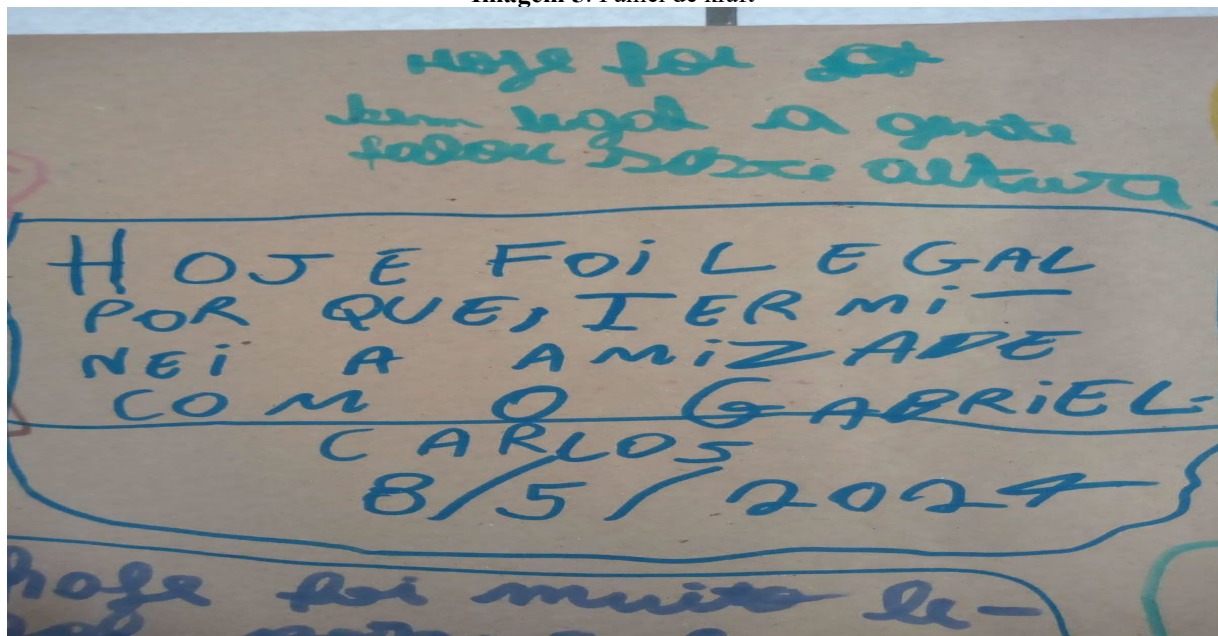 Hoje foi
bem legal a gente
falou sobre altura.
HOJE FOi LEGAL
POR QUE, TERMi-
NEi A AMiZADE
COM O GABRiEL-
CARLOS
8/5/2024
hoje foi muito le-